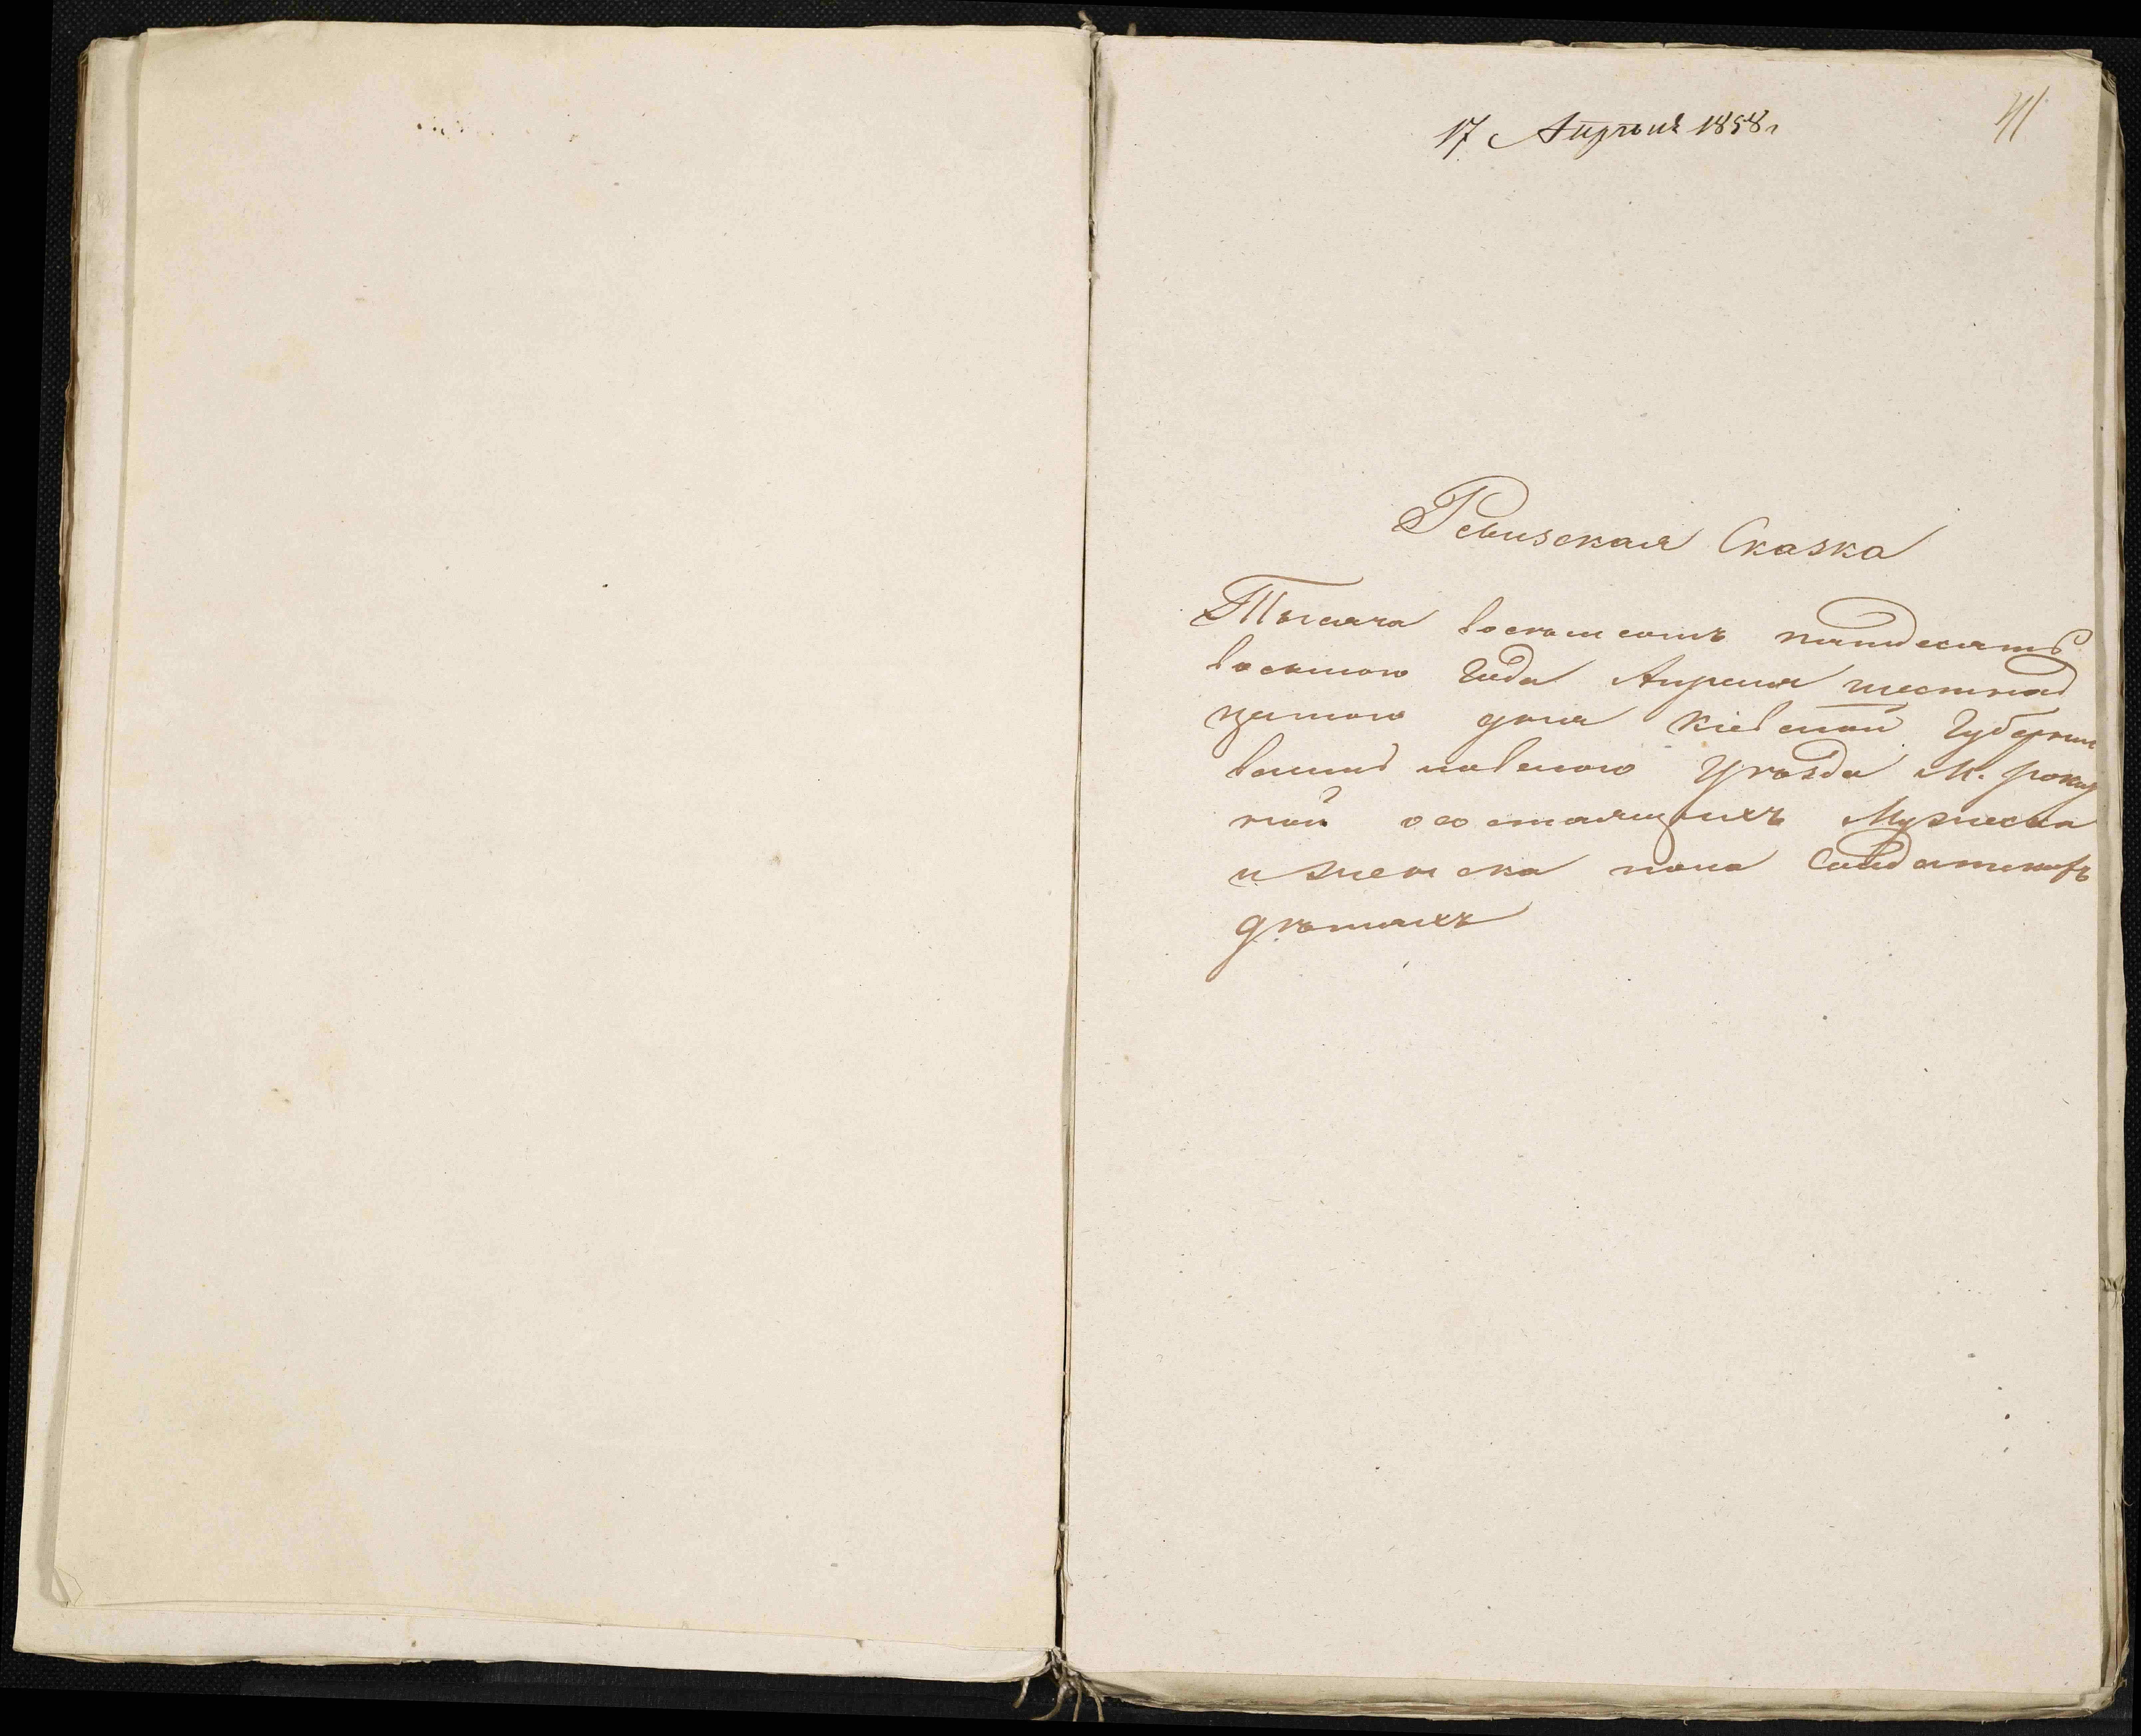 17 Апрѣля 1858 г
41
Ревизская Сказка
Тысяча восемьсотъ пятдесятъ
восьмого Года Апреля шестнад
цатого дня Кіевской Губерніи
Василь ковского Уѣзда М. Рокит
ной о состоящихъ Мужеска
и женска пола Солдатскихъ
дѣтяхъ